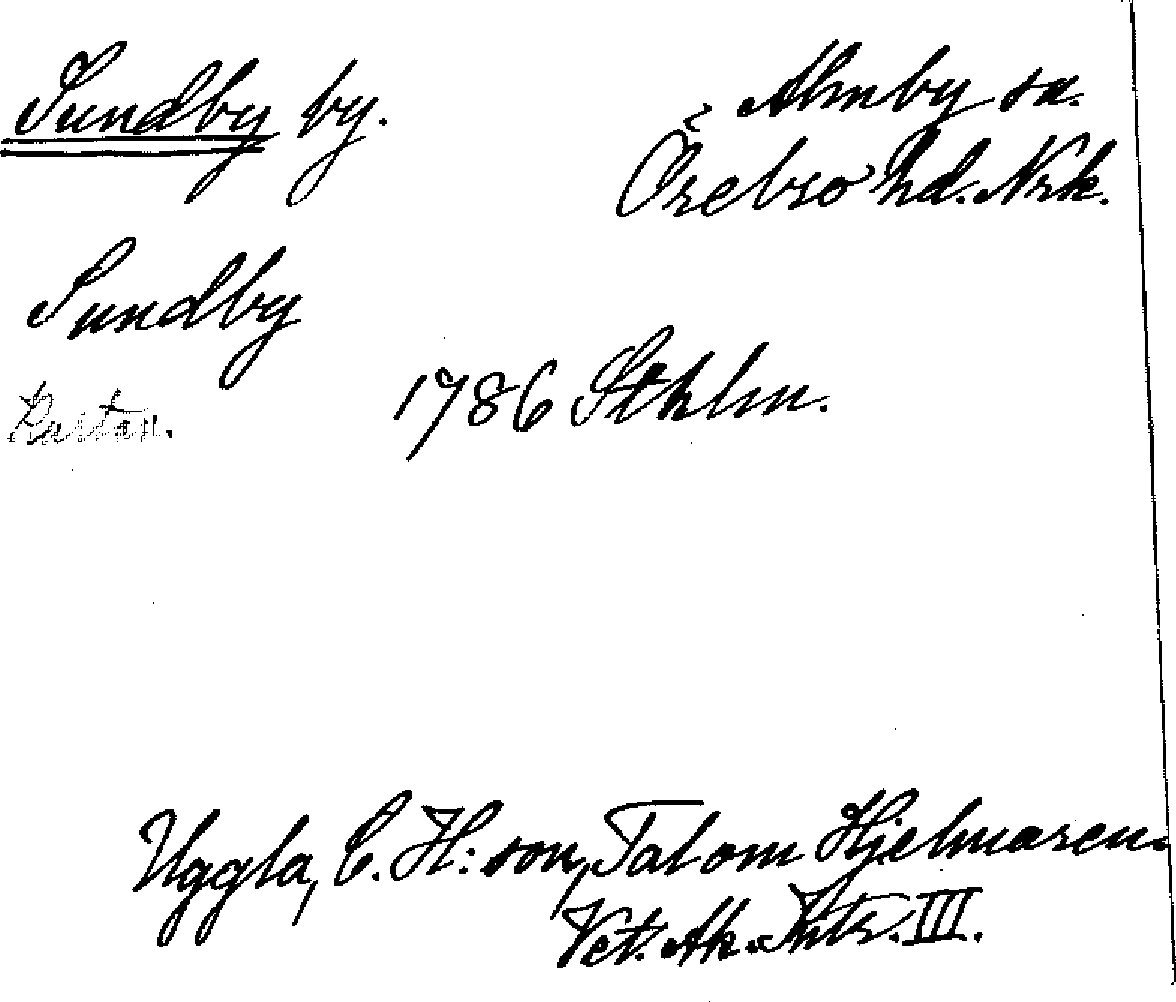 Sundby by. Almby sn.
Örebro hd. Nrk.
Sundby
Kartan. 1786 Sthlm.
Uggla, C. H:son, Tal om Hjelmaren.
Vet. Ak. Intr. III.